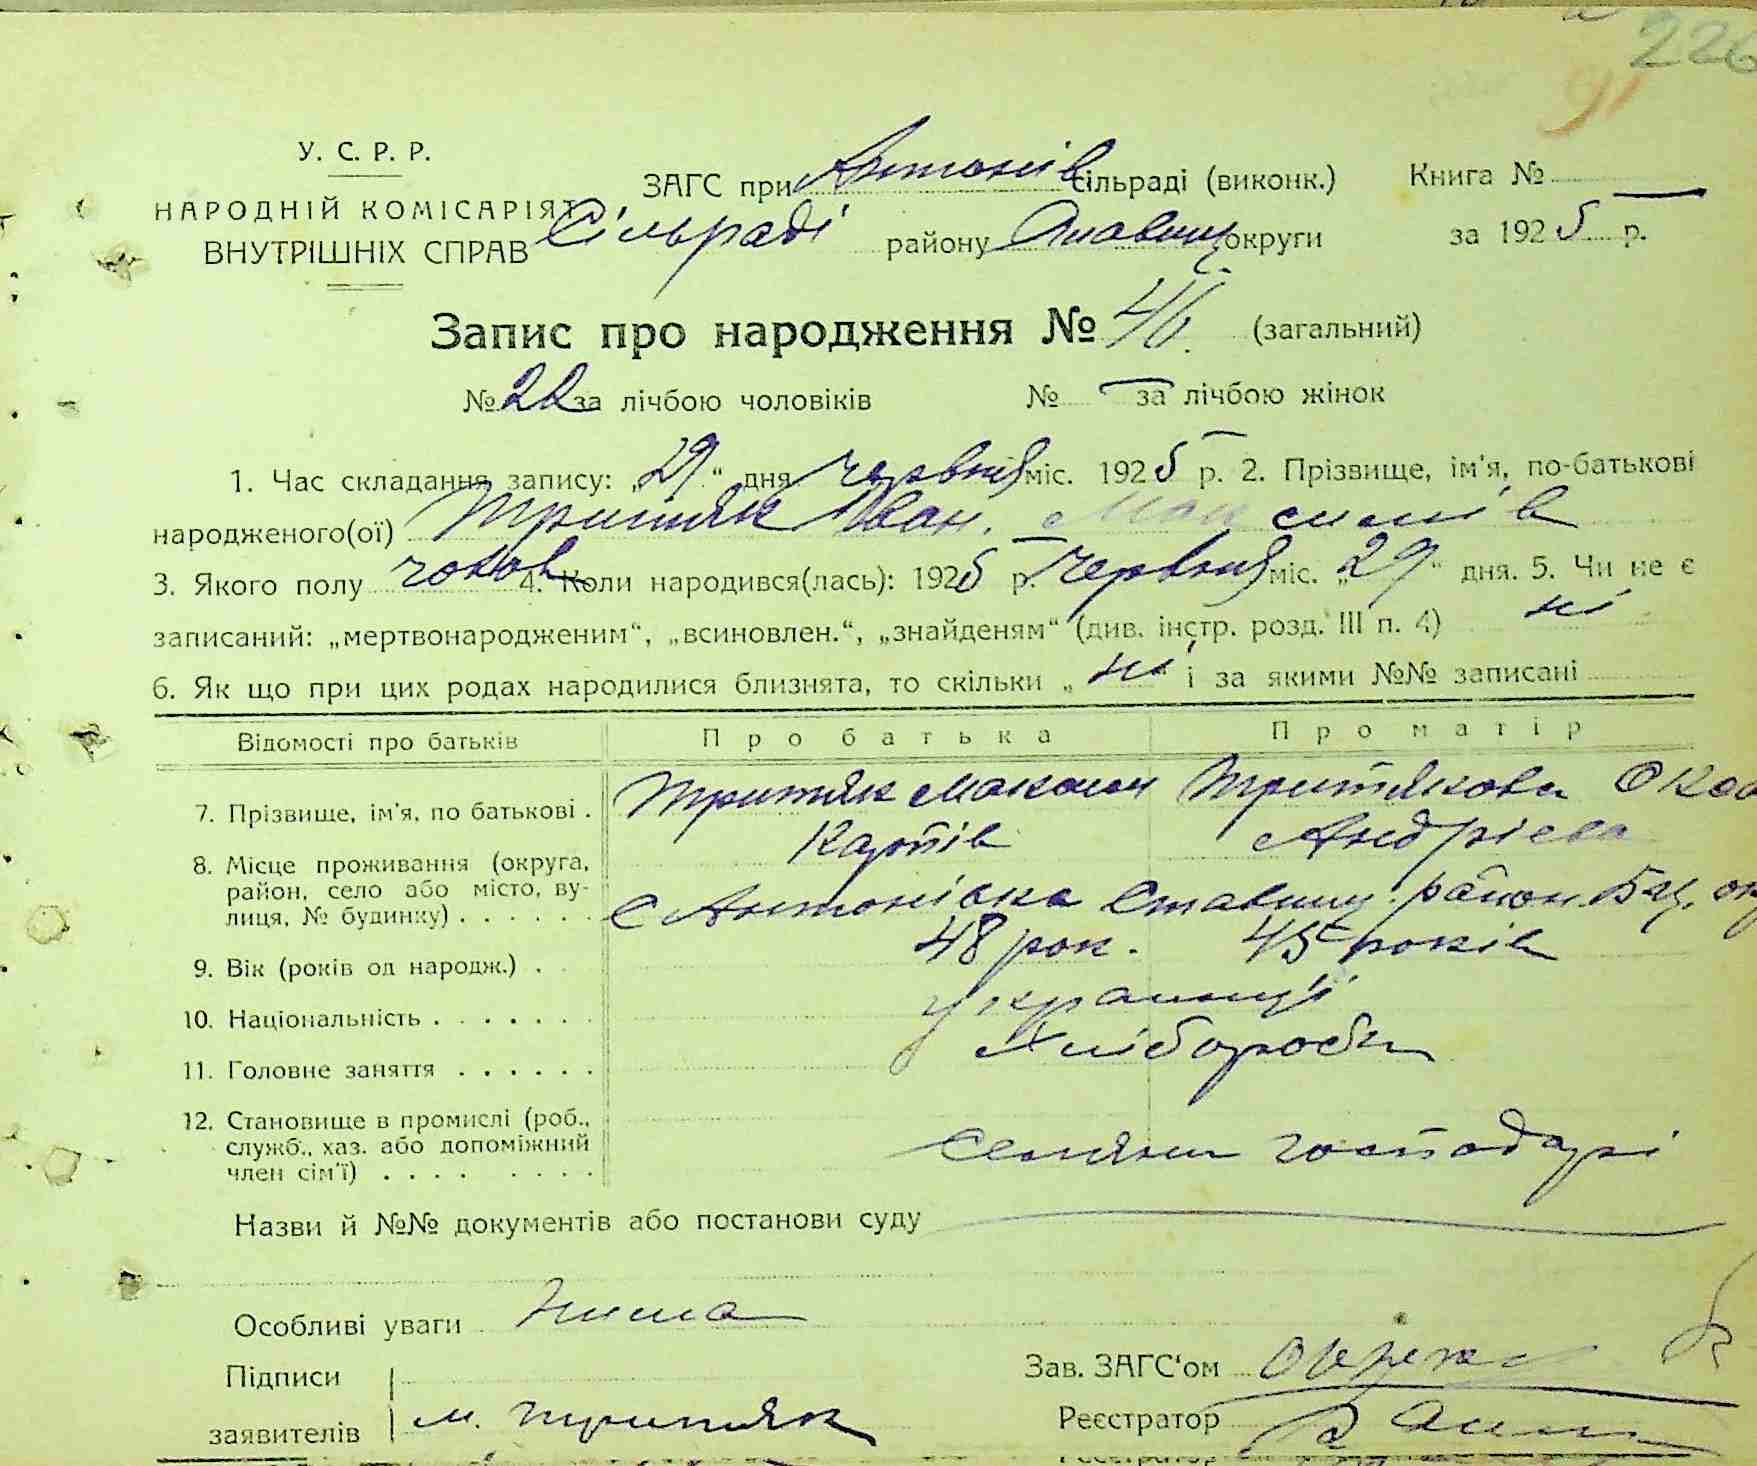 226
91
У. С. Р. Р.
НАРОДНІЙ КОМІСАРІЯТ
ВНУТРІШНІХ СПРАВ
ЗАГС при Антонів сільраді (виконк.) Книга №
Сільраді району Ставищ округи за 1925 р.
Запис про народження № 46. (загальний)
№ 22 за лічбою чоловіків № за лічбою жінок
1. Час складання запису: „29“ дня червня міс. 1925 р. 2. Прізвище, ім'я, по-батькові
народженого(ої) Притяк Іван. Максимів
3. Якого полу чолов 4. Коли народився(лась): 1925 р. Червня міс. „29“ дня. 5. Чи не є
записаний: „мертвонародженим“, „всиновлен.“, „знайденям“ (див. інстр. розд. III п. 4) ні
6. Як що при цих родах народилися близнята, то скільки „ні“ і за якими №№ записані
Відомості про батьків Про батька Про матір
7. Прізвище, ім'я, по батькові . Притяк Максим Притякова
Карпів Андрієва
8. Місце проживання (округа,
район, село або місто, ву-
лиця, № будинку) . . . . . . с Антонівка Ставищ. район. Бц. ок
9. Вік (років од народж.) . . 48 рок. 45 років
10. Національність . . . . . . . українці
11. Головне заняття . . . . . . Хлібороби
12. Становище в промислі (роб.,
служб., хаз. або допоміжний
член сім'ї) . . . . . . . . селяни господарі
Назви й №№ документів або постанови суду
Особливі уваги Нима
Підписи
заявителів м. притяк
Зав. ЗАГС'ом
Реєстратор